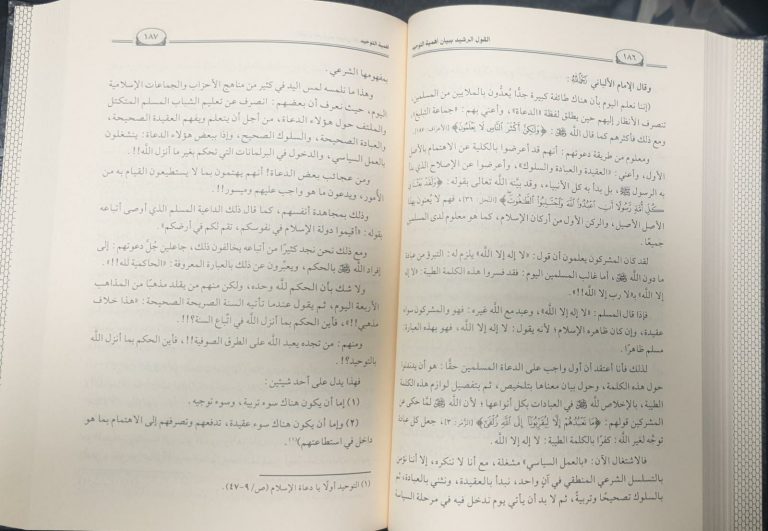 القول الرشيد ببيان أهمية التوحيد
١٨٦
وقال الإمام الألباني رَحِمَهُ اللهُ :
(إننا نعلم اليوم بأن هناك طائفة كبيرة جدًّا يُعدُّون بالملايين من المسلمين،
تنصرف الأنظار إليهم حين يطلق لفظة «الدعاة»، وأعني بهم: «جماعة التبليغ»،
ومع ذلك فأكثرهم كما قال اللَّه ﷻ: ﴿وَلَكِنَّ أَكْثَرَ النَّاسِ لَا يَعْلَمُونَ﴾ [الأعراف: ١٨٧].
ومعلوم من طريقة دعوتهم: أنهم قد أعرضوا بالكلية عن الاهتمام بالأصل
الأول، وأعني: «العقيدة والعبادة والسلوك»، وأعرضوا عن الإصلاح الذي بدأ
به الرسول ﷺ، بل بدأ به كل الأنبياء، وقد بيَّنه اللَّه تعالى بقوله: ﴿وَلَقَدْ بَعَثْنَا فِي
كُلِّ أُمَّةٍ رَسُولًا أَنِ اعْبُدُوا اللَّهَ وَاجْتَنِبُوا الطَّاغُوتَ﴾ [النحل: ٣٦]، فهم لا يُعنون بهذا
الأصل الأصيل، والركن الأول من أركان الإسلام، كما هو معلوم لدى المسلمين
جميعًا.
لقد كان المشركون يعلمون أن قول: «لا إله إلا اللَّه» يلزم له: التبرؤ من عبادة
ما دون اللَّه ﷻ، أما غالب المسلمين اليوم: فقد فسروا هذه الكلمة الطيبة: «لا
إله إلا اللَّه» بـ«لا رب إلا اللَّه!!».
فإذا قال المسلم: «لا إله إلا اللَّه»، وعبد مع اللَّه غيره: فهو والمشركون سواء
عقيدة، وإن كان ظاهره الإسلام؛ لأنه يقول: لا إله إلا اللَّه، فهو بهذه العبارة:
مسلم ظاهرًا.
لذلك فأنا أعتقد أن أول واجب على الدعاة المسلمين حقًّا: هو أن يدندنوا
حول هذه الكلمة، وحول بيان معناها بتلخيص، ثم بتفصيل لوازم هذه الكلمة
الطيبة، بالإخلاص للَّه ﷻ في العبادات بكل أنواعها؛ لأن اللَّه ﷻ لمَّا حكى عن
المشركين قولهم: ﴿مَا نَعْبُدُهُمْ إِلَّا لِيُقَرِّبُونَا إِلَى اللَّهِ زُلْفَى﴾ [الزُّمَر: ٣]، جعل كل عبادة
توجَّه لغير اللَّه: كفرًا بالكلمة الطيبة: لا إله إلا اللَّه.
فالاشتغال الآن: «بالعمل السياسي» مشغلة، مع أنا لا ننكره، إلا أننا نؤمن
بالتسلسل الشرعي المنطقي في آنٍ واحد، نبدأ بالعقيدة، ونثني بالعبادة، ثم
بالسلوك تصحيحًا وتربيةً، ثم لا بد أن يأتي يوم ندخل فيه في مرحلة السياسة
أهمية التوحيد
١٨٧
بمفهومها الشرعي.
وهذا ما نلمسه لمس اليد في كثير من مناهج الأحزاب والجماعات الإسلامية
اليوم، حيث نعرف أن بعضهم: انصرف عن تعليم الشباب المسلم المتكتل
والملتف حول هؤلاء الدعاة، من أجل أن يتعلم ويفهم العقيدة الصحيحة،
والعبادة الصحيحة، والسلوك الصحيح، وإذا ببعض هؤلاء الدعاة: ينشغلون
بالعمل السياسي، والدخول في البرلمانات التي تحكم بغير ما أنزل اللَّه!!.
ومن عجائب بعض الدعاة! أنهم يهتمون بما لا يستطيعون القيام به من
الأمور، ويدعون ما هو واجب عليهم وميسور!!.
وذلك بمجاهدة أنفسهم، كما قال ذلك الداعية المسلم الذي أوصى أتباعه
بقوله: «أقيموا دولة الإسلام في نفوسكم، تقم لكم في أرضكم».
ومع ذلك نحن نجد كثيرًا من أتباعه يخالفون ذلك، جاعلين جُلَّ دعوتهم: إلى
إفراد اللَّه ﷻ بالحكم، ويعبِّرون عن ذلك بالعبارة المعروفة: «الحاكمية لله!!».
ولا شك بأن الحكم للَّه وحده، ولكن منهم من يقلد مذهبًا من المذاهب
الأربعة اليوم، ثم يقول عندما تأتيه السنة الصريحة الصحيحة: «هذا خلاف
مذهبي!!»، فأين الحكم بما أنزل اللَّه في اتِّباع السنة؟!!.
ومنهم: من تجده يعبد اللَّه على الطرق الصوفية!!، فأين الحكم بما أنزل اللَّه
بالتوحيد؟!.
فهذا يدل على أحد شيئين:
(١) إما أن يكون هناك سوء تربية، وسوء توجيه.
(٢) وإما أن يكون هناك سوء عقيدة، تدفعهم وتصرفهم إلى الاهتمام بما هو
داخل في استطاعتهم)(١).
(١) التوحيد أولًا يا دعاة الإسلام (ص/ ٩-٤٧).